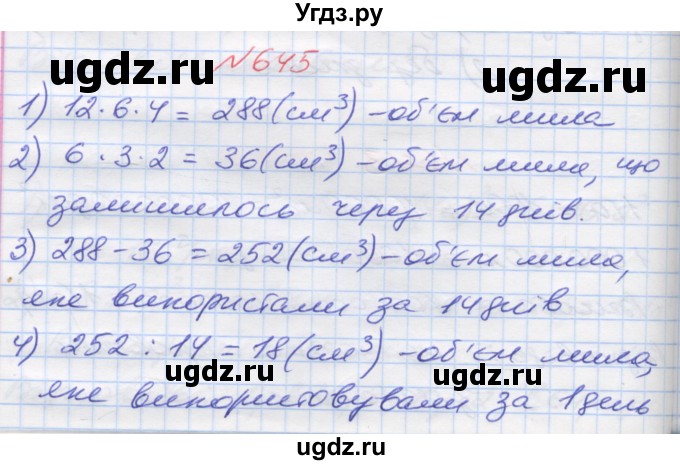 Угдз.ру
№645
1) 12·6·4 = 288(см³) – об'єм мила
2) 6·3·2 = 36(см³) – об'єм мила, що
залишилось через 14 днів.
3) 288 – 36 = 252(см³) – об'єм мила,
яке використали за 14 днів
4) 252 : 14 = 18(см³) – об'єм мила,
яке використовували за 1 день
ugdz.ru
ugdz.ru
ugdz.ru
ugdz.ru
ugdz.ru
ugdz.ru
ugdz.ru
ugdz.ru